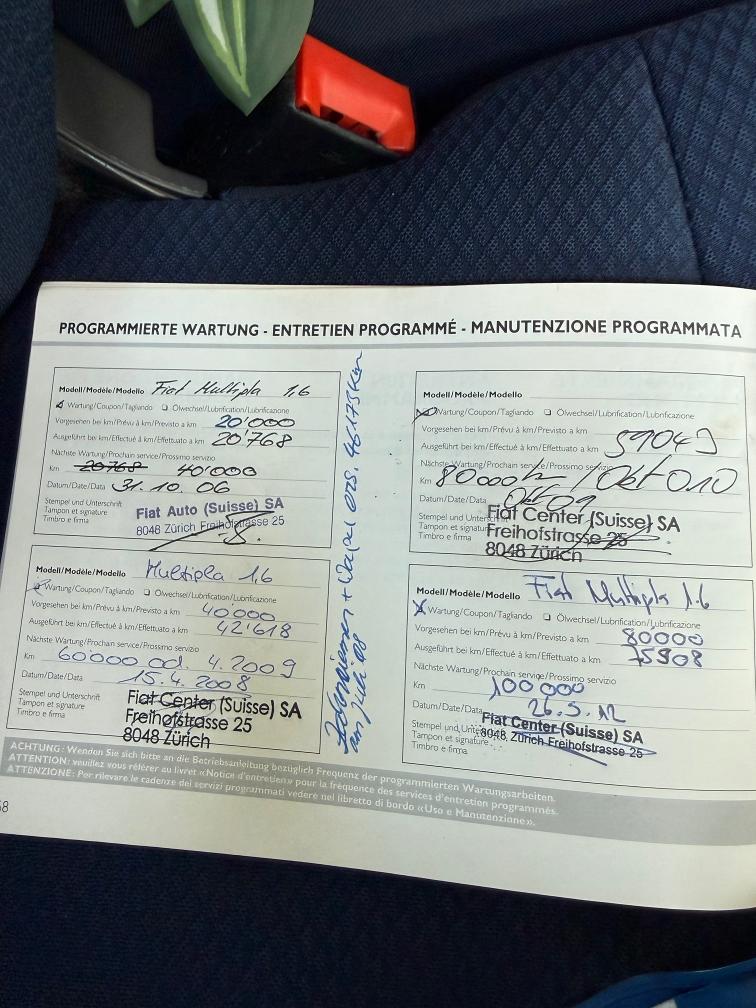 PROGRAMMIERTE WARTUNG - ENTRETIEN PROGRAMMÉ - MANUTENZIONE PROGRAMMATA
Modell/Modèle/Modello Fiat Multipla 1,6
Wartung/Coupon/Tagliando Ölwechsel/Lubrification/Lubrificazione
Vorgesehen bei km/Prévu à km/Previsto a km 20'000
Ausgeführt bei km/Effectué à km/Effettuato a km 20'768
Nächste Wartung/Prochain service/Prossimo servizio
Km 20'768 40'000
Datum/Date/Data 31.10.06
Stempel und Unterschrift
Tampon et signature
Timbro e firma
Fiat Auto (Suisse) SA
8048 Zürich Freihofstrasse 25
Modell/Modèle/Modello Multipla 1,6
Wartung/Coupon/Tagliando Ölwechsel/Lubrification/Lubrificazione
Vorgesehen bei km/Prévu à km/Previsto a km 40'000
Ausgeführt bei km/Effectué à km/Effettuato a km 42'618
Nächste Wartung/Prochain service/Prossimo servizio
Km 60'000 od. 4.2009
Datum/Date/Data 15.4.2008
Stempel und Unterschrift
Tampon et signature
Timbro e firma
Fiat Center (Suisse) SA
Freihofstrasse 25
8048 Zürich
46173 Km
am Juli 08
Modell/Modèle/Modello
Wartung/Coupon/Tagliando Ölwechsel/Lubrification/Lubrificazione
Vorgesehen bei km/Prévu à km/Previsto a km
Ausgeführt bei km/Effectué à km/Effettuato a km 59049
Nächste Wartung/Prochain service/Prossimo servizio
Km 80000 / Okt 010
Datum/Date/Data Okt 09
Stempel und Unterschrift
Tampon et signature
Timbro e firma
Fiat Center (Suisse) SA
Freihofstrasse 25
8048 Zürich
Modell/Modèle/Modello Fiat Multipla 1.6
Wartung/Coupon/Tagliando Ölwechsel/Lubrification/Lubrificazione
Vorgesehen bei km/Prévu à km/Previsto a km 80000
Ausgeführt bei km/Effectué à km/Effettuato a km 75908
Nächste Wartung/Prochain service/Prossimo servizio
Km 100 000
Datum/Date/Data 26.5.12
Stempel und Unterschrift
Tampon et signature
Timbro e firma
Fiat Center (Suisse) SA
8048, Zürich Freihofstrasse 25
ACHTUNG: Wenden Sie sich bitte an die Betriebsanleitung bezüglich Frequenz der programmierten Wartungsarbeiten.
ATTENTION: veuillez vous référer au livret «Notice d'entretien» pour la fréquence des services d'entretien programmés.
ATTENZIONE: Per rilevare le cadenze dei servizi programmati vedere nel libretto di bordo «Uso e Manutenzione».
58